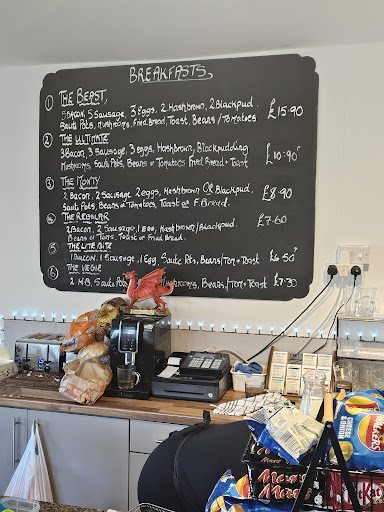 BREAKFASTS,
1 THE BEAST,
5 BACON, 5 SAUSAGE, 3 EGGS, 2 HASHBROWN, 2 BLACKPUD. £15.90
SAUTE POTS, MUSHROOMS, FRIED BREAD, TOAST, BEANS/TOMATOES
2 THE ULTIMATE
3 BACON, 3 SAUSAGE, 3 EGGS, HASHBROWN, BLACKPUDDING £10.90
MUSHROOMS, SAUTE POTS, BEANS OR TOMATOES FRIED BREAD + TOAST
3 THE MONTY
2 BACON, 2 SAUSAGE 2 EGGS, HASHBROWN OR BLACKPUD. £8.90
SAUTE POTS, BEANS OR TOMATOES, TOAST OR F.BREAD.
THE REGULAR
2 BACON, 2 SAUSAGE, 1 EGG, HASHBROWN/BLACKPUD. £7.60
BEANS OR TOMS, TOAST OR FRIED BREAD.
5 THE LITE BITE
1 BACON, 1 SAUSAGE, 1 EGG, SAUTE PTS, BEANS/TOM + TOAST £6.50
6 THE VEGIE
SAUTE POTS, MUSHROOMS, BEANS/TOM + TOAST £7.30
CHEESE
& ONION
Mars
Mars
KitKat